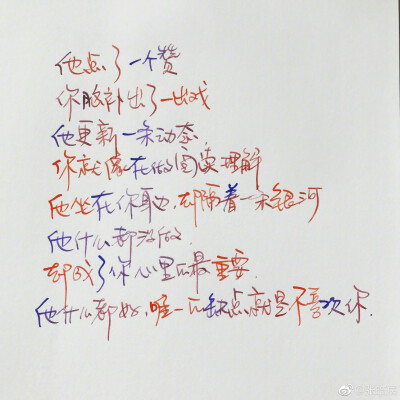 他点了一个赞
你脑补出了一出戏
他更新一条动态,
你就像在做阅读理解
他坐在你身边,却隔着一条银河
他什么都没做.
却成了你心里最重要.
他什么都好,唯一缺点就是不喜欢你.